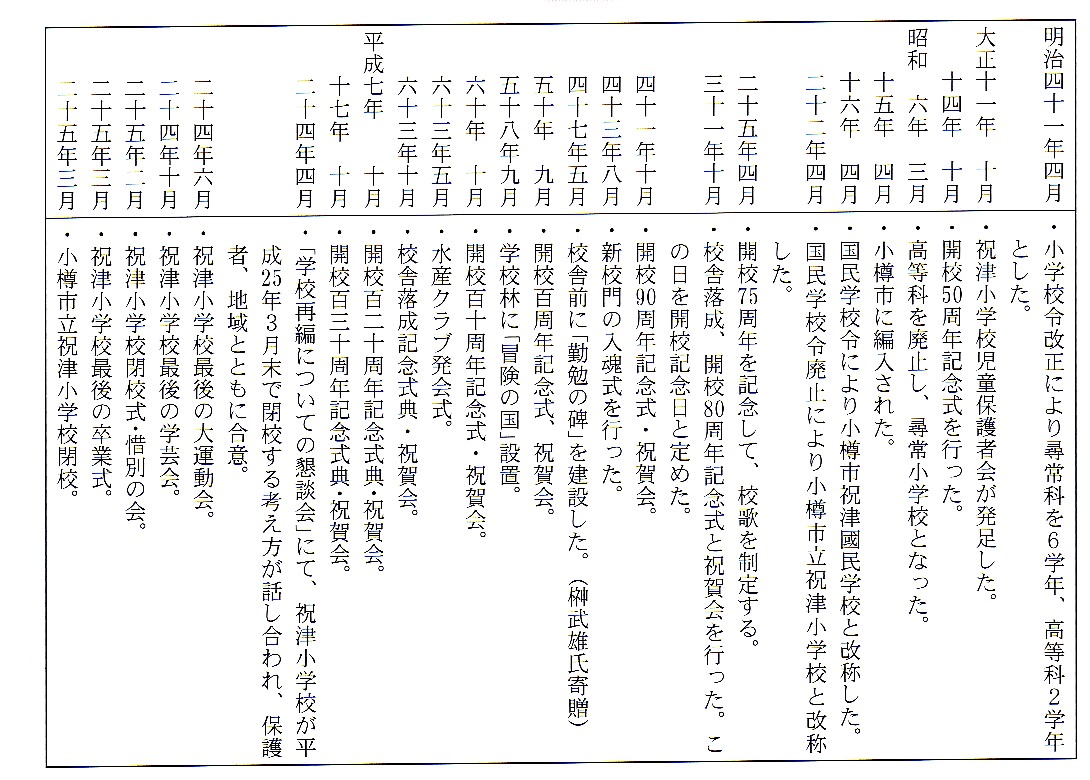 明治四十一年四月 ・小学校令改正により尋常科を6学年、高等科2学年
とした。
大正十一年 十月 ・祝津小学校児童保護者会が発足した。
十四年 十月 ・開校50周年記念式を行った。
昭和 六年 三月 ・高等科を廃止し、尋常小学校となった。
十五年 四月 ・小樽市に編入された。
十六年 四月 ・国民学校令により小樽市祝津國民学校と改称した。
二十二年四月 ・国民学校令廃止により小樽市立祝津小学校と改称
した。
二十五年四月 ・開校75周年を記念して、校歌を制定する。
三十一年十月 ・校舎落成、開校80周年記念式と祝賀会を行った。こ
の日を開校記念日と定めた。
四十一年十月 ・開校90周年記念式・祝賀会。
四十三年八月 ・新校門の入魂式を行った。
四十七年五月 ・校舎前に「勤勉の碑」を建設した。（榊武雄氏寄贈）
五十年 九月 ・開校百周年記念式、祝賀会。
五十八年九月 ・学校林に「冒険の国」設置。
六十年 十月 ・開校百十周年記念式・祝賀会。
六十三年五月 ・水産クラブ発会式。
六十三年十月 ・校舎落成記念式典・祝賀会。
平成七年 十月 ・開校百二十周年記念式典・祝賀会。
十七年 十月 ・開校百三十周年記念式典・祝賀会。
二十四年四月 ・「学校再編についての懇談会」にて、祝津小学校が平
成25年3月末で閉校する考え方が話し合われ、保護
者、地域とともに合意。
二十四年六月 ・祝津小学校最後の大運動会。
二十四年十月 ・祝津小学校最後の学芸会。
二十五年二月 ・祝津小学校閉校式・惜別の会。
二十五年三月 ・祝津小学校最後の卒業式。
二十五年三月 ・小樽市立祝津小学校閉校。